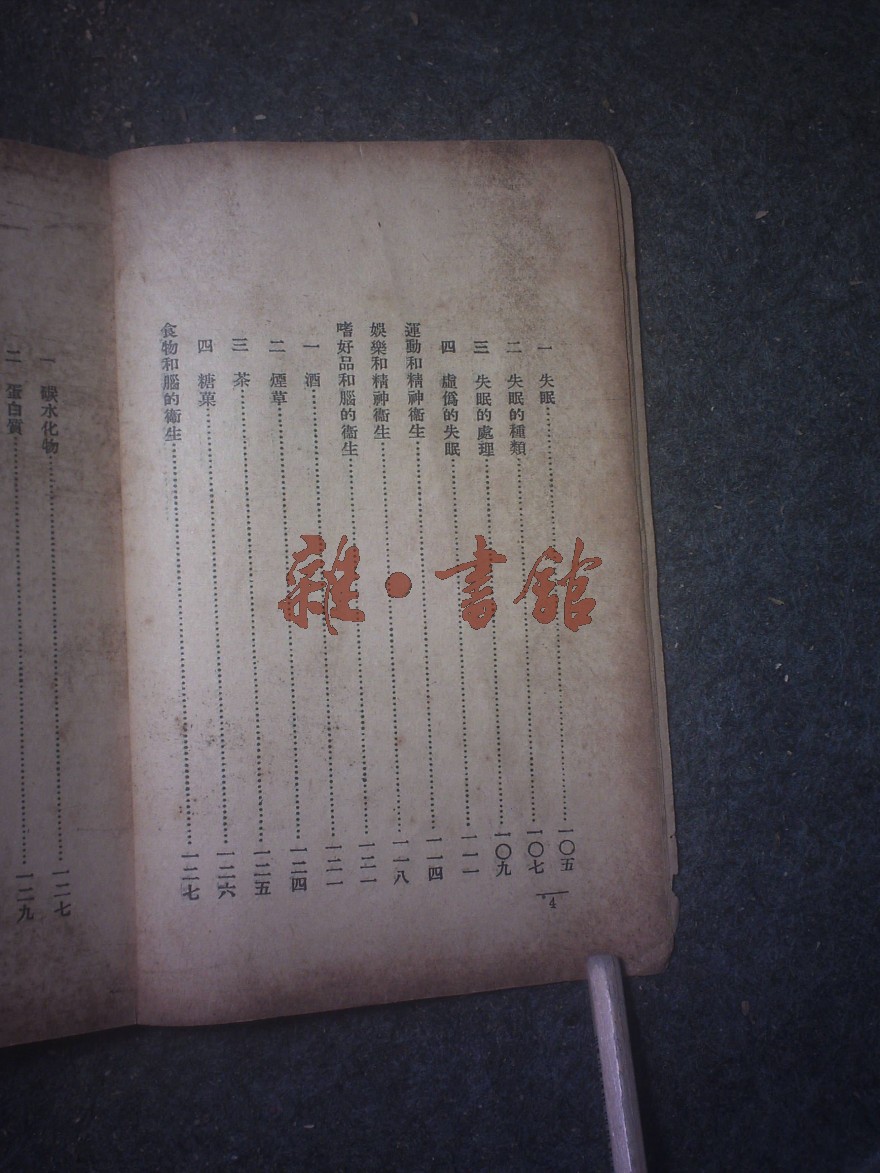 一　失眠……一〇五
二　失眠的種類……一〇七
三　失眠的處理……一〇九
四　虛僞的失眠……一一一
運動和精神衞生……一一四
娛樂和精神衞生……一一八
嗜好品和腦的衞生……一二一
一　酒……一二一
二　煙草……一二四
三　茶……一二五
四　糖菓……一二六
食物和腦的衞生……一二七
4
一　碳水化物……一二七
二　蛋白質……一二九
雜·書館